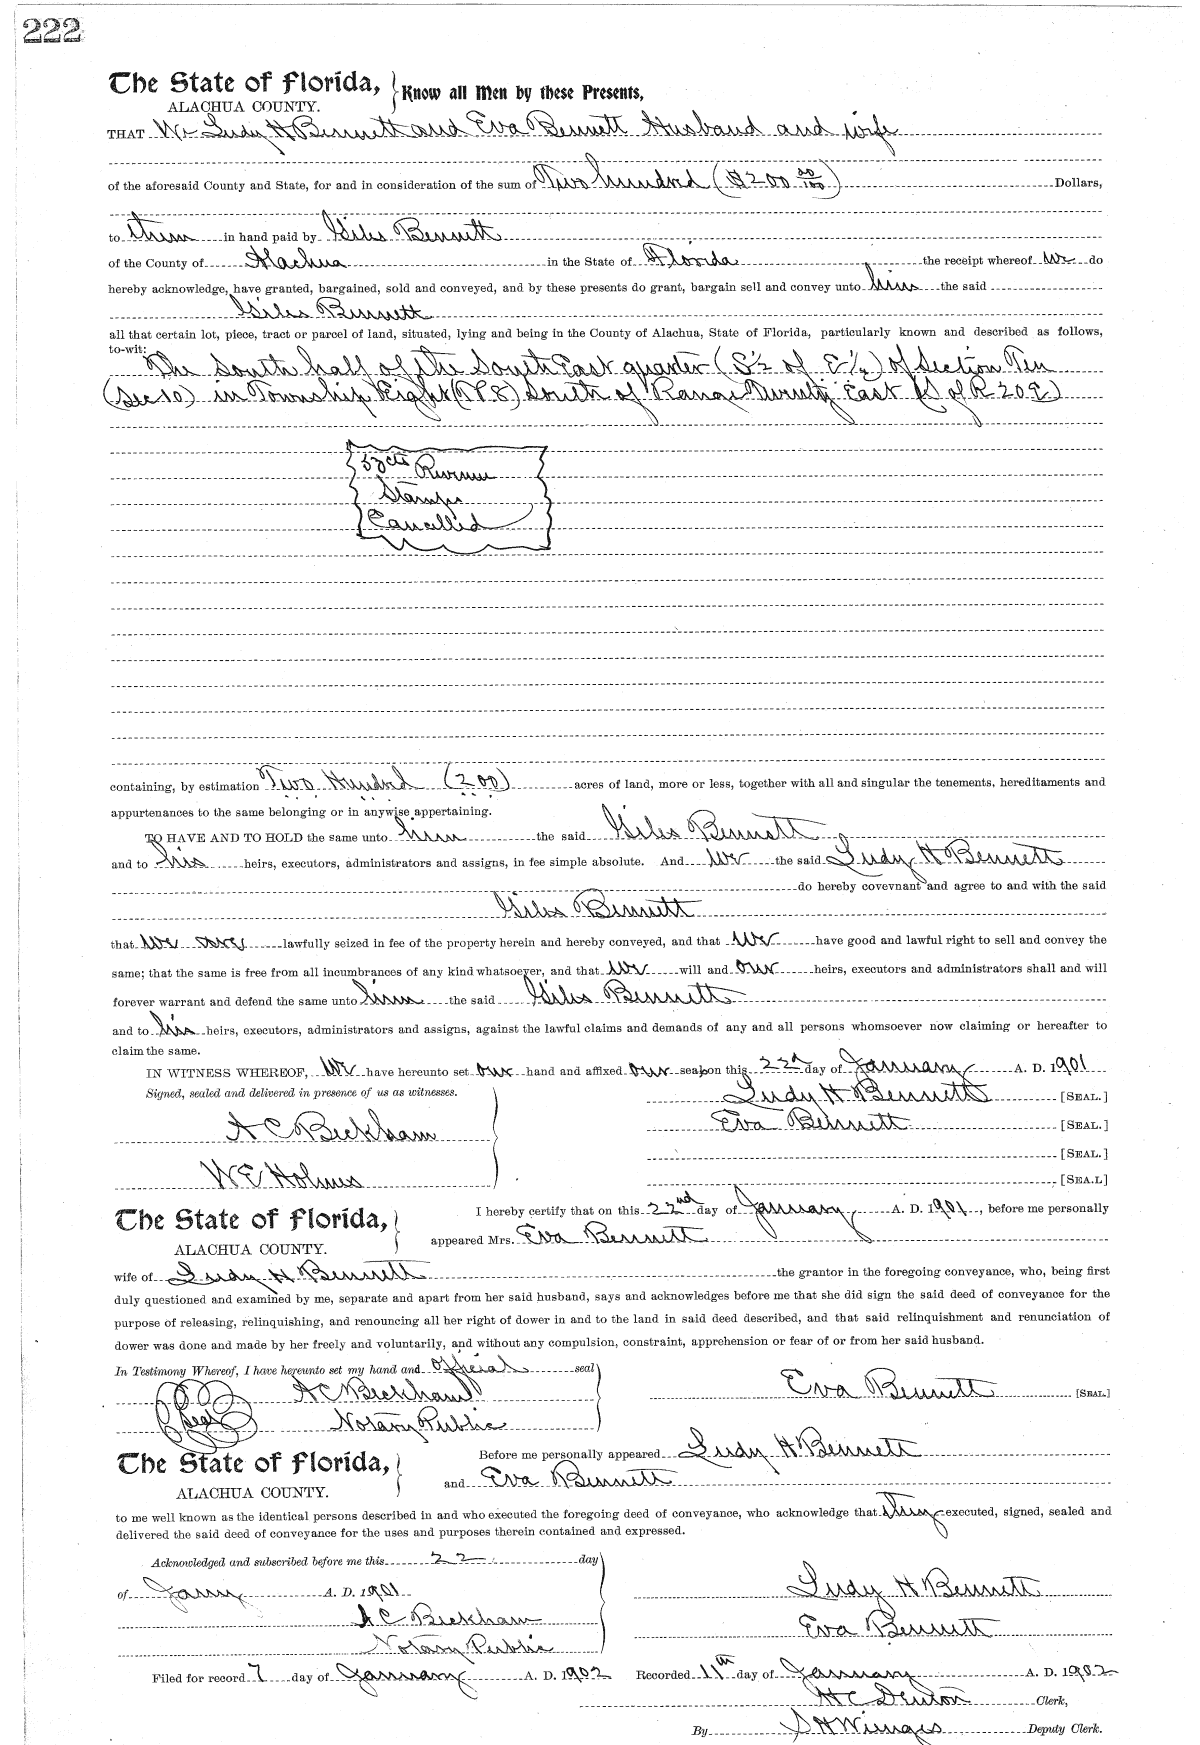 222
The State of Florida, Know all Men by these Presents,
ALACHUA COUNTY.
THAT We Ludy H Bennett and Eva Bennett Husband and wife
of the aforesaid County and State, for and in consideration of the sum of Two hundred ($200 00/100) Dollars,
to them in hand paid by Giles Bennett
of the County of Alachua in the State of Florida the receipt whereof we do
hereby acknowledge, have granted, bargained, sold and conveyed, and by these presents do grant, bargain sell and convey unto him the said
Giles Bennett
all that certain lot, piece, tract or parcel of land, situated, lying and being in the County of Alachua, State of Florida, particularly known and described as follows,
to-wit: The South half of the South East quarter (S½ of E¼) of Section Ten
(Sec 10) in Township Eight (TP 8) South of Range Twenty East (S of R 20 E)
cts Revenue
Stamps
Cancelled
containing, by estimation Two Hundred (200) acres of land, more or less, together with all and singular the tenements, hereditaments and
appurtenances to the same belonging or in anywise appertaining.
TO HAVE AND TO HOLD the same unto him the said Giles Bennett
and to his heirs, executors, administrators and assigns, in fee simple absolute. And We the said Ludy H Bennett
do hereby covevnant and agree to and with the said
Giles Bennett
that we are lawfully seized in fee of the property herein and hereby conveyed, and that We have good and lawful right to sell and convey the
same; that the same is free from all incumbrances of any kind whatsoever, and that we will and our heirs, executors and administrators shall and will
forever warrant and defend the same unto him the said Giles Bennett
and to his heirs, executors, administrators and assigns, against the lawful claims and demands of any and all persons whomsoever now claiming or hereafter to
claim the same.
IN WITNESS WHEREOF, We have hereunto set our hand and affixed our seal on this 22d day of January A. D. 1901
Signed, sealed and delivered in presence of us as witnesses. Ludy H Bennett [SEAL.]
A C Beckham Eva Bennett [SEAL.]
[SEAL.]
W E Holmes [SEA.L]
The State of Florida, I hereby certify that on this 22nd day of January A. D. 1901, before me personally
ALACHUA COUNTY. appeared Mrs. Eva Bennett
wife of Ludy H Bennett the grantor in the foregoing conveyance, who, being first
duly questioned and examined by me, separate and apart from her said husband, says and acknowledges before me that she did sign the said deed of conveyance for the
purpose of releasing, relinquishing, and renouncing all her right of dower in and to the land in said deed described, and that said relinquishment and renunciation of
dower was done and made by her freely and voluntarily, and without any compulsion, constraint, apprehension or fear of or from her said husband.
In Testimony Whereof, I have hereunto set my hand and official seal
A C Beckham Eva Bennett [SEAL.]
Seal Notary Public
The State of Florida, Before me personally appeared Ludy H Bennett
ALACHUA COUNTY. and Eva Bennett
to me well known as the identical persons described in and who executed the foregoing deed of conveyance, who acknowledge that they executed, signed, sealed and
delivered the said deed of conveyance for the uses and purposes therein contained and expressed.
Acknowledged and subscribed before me this 22 day
of Jany A. D. 1901 Ludy H Bennett
A C Beckham Eva Bennett
Notary Public
Filed for record 7 day of January A. D. 1902 Recorded 11th day of January A. D. 1902
H C Denton Clerk,
By S H Wienges Deputy Clerk.